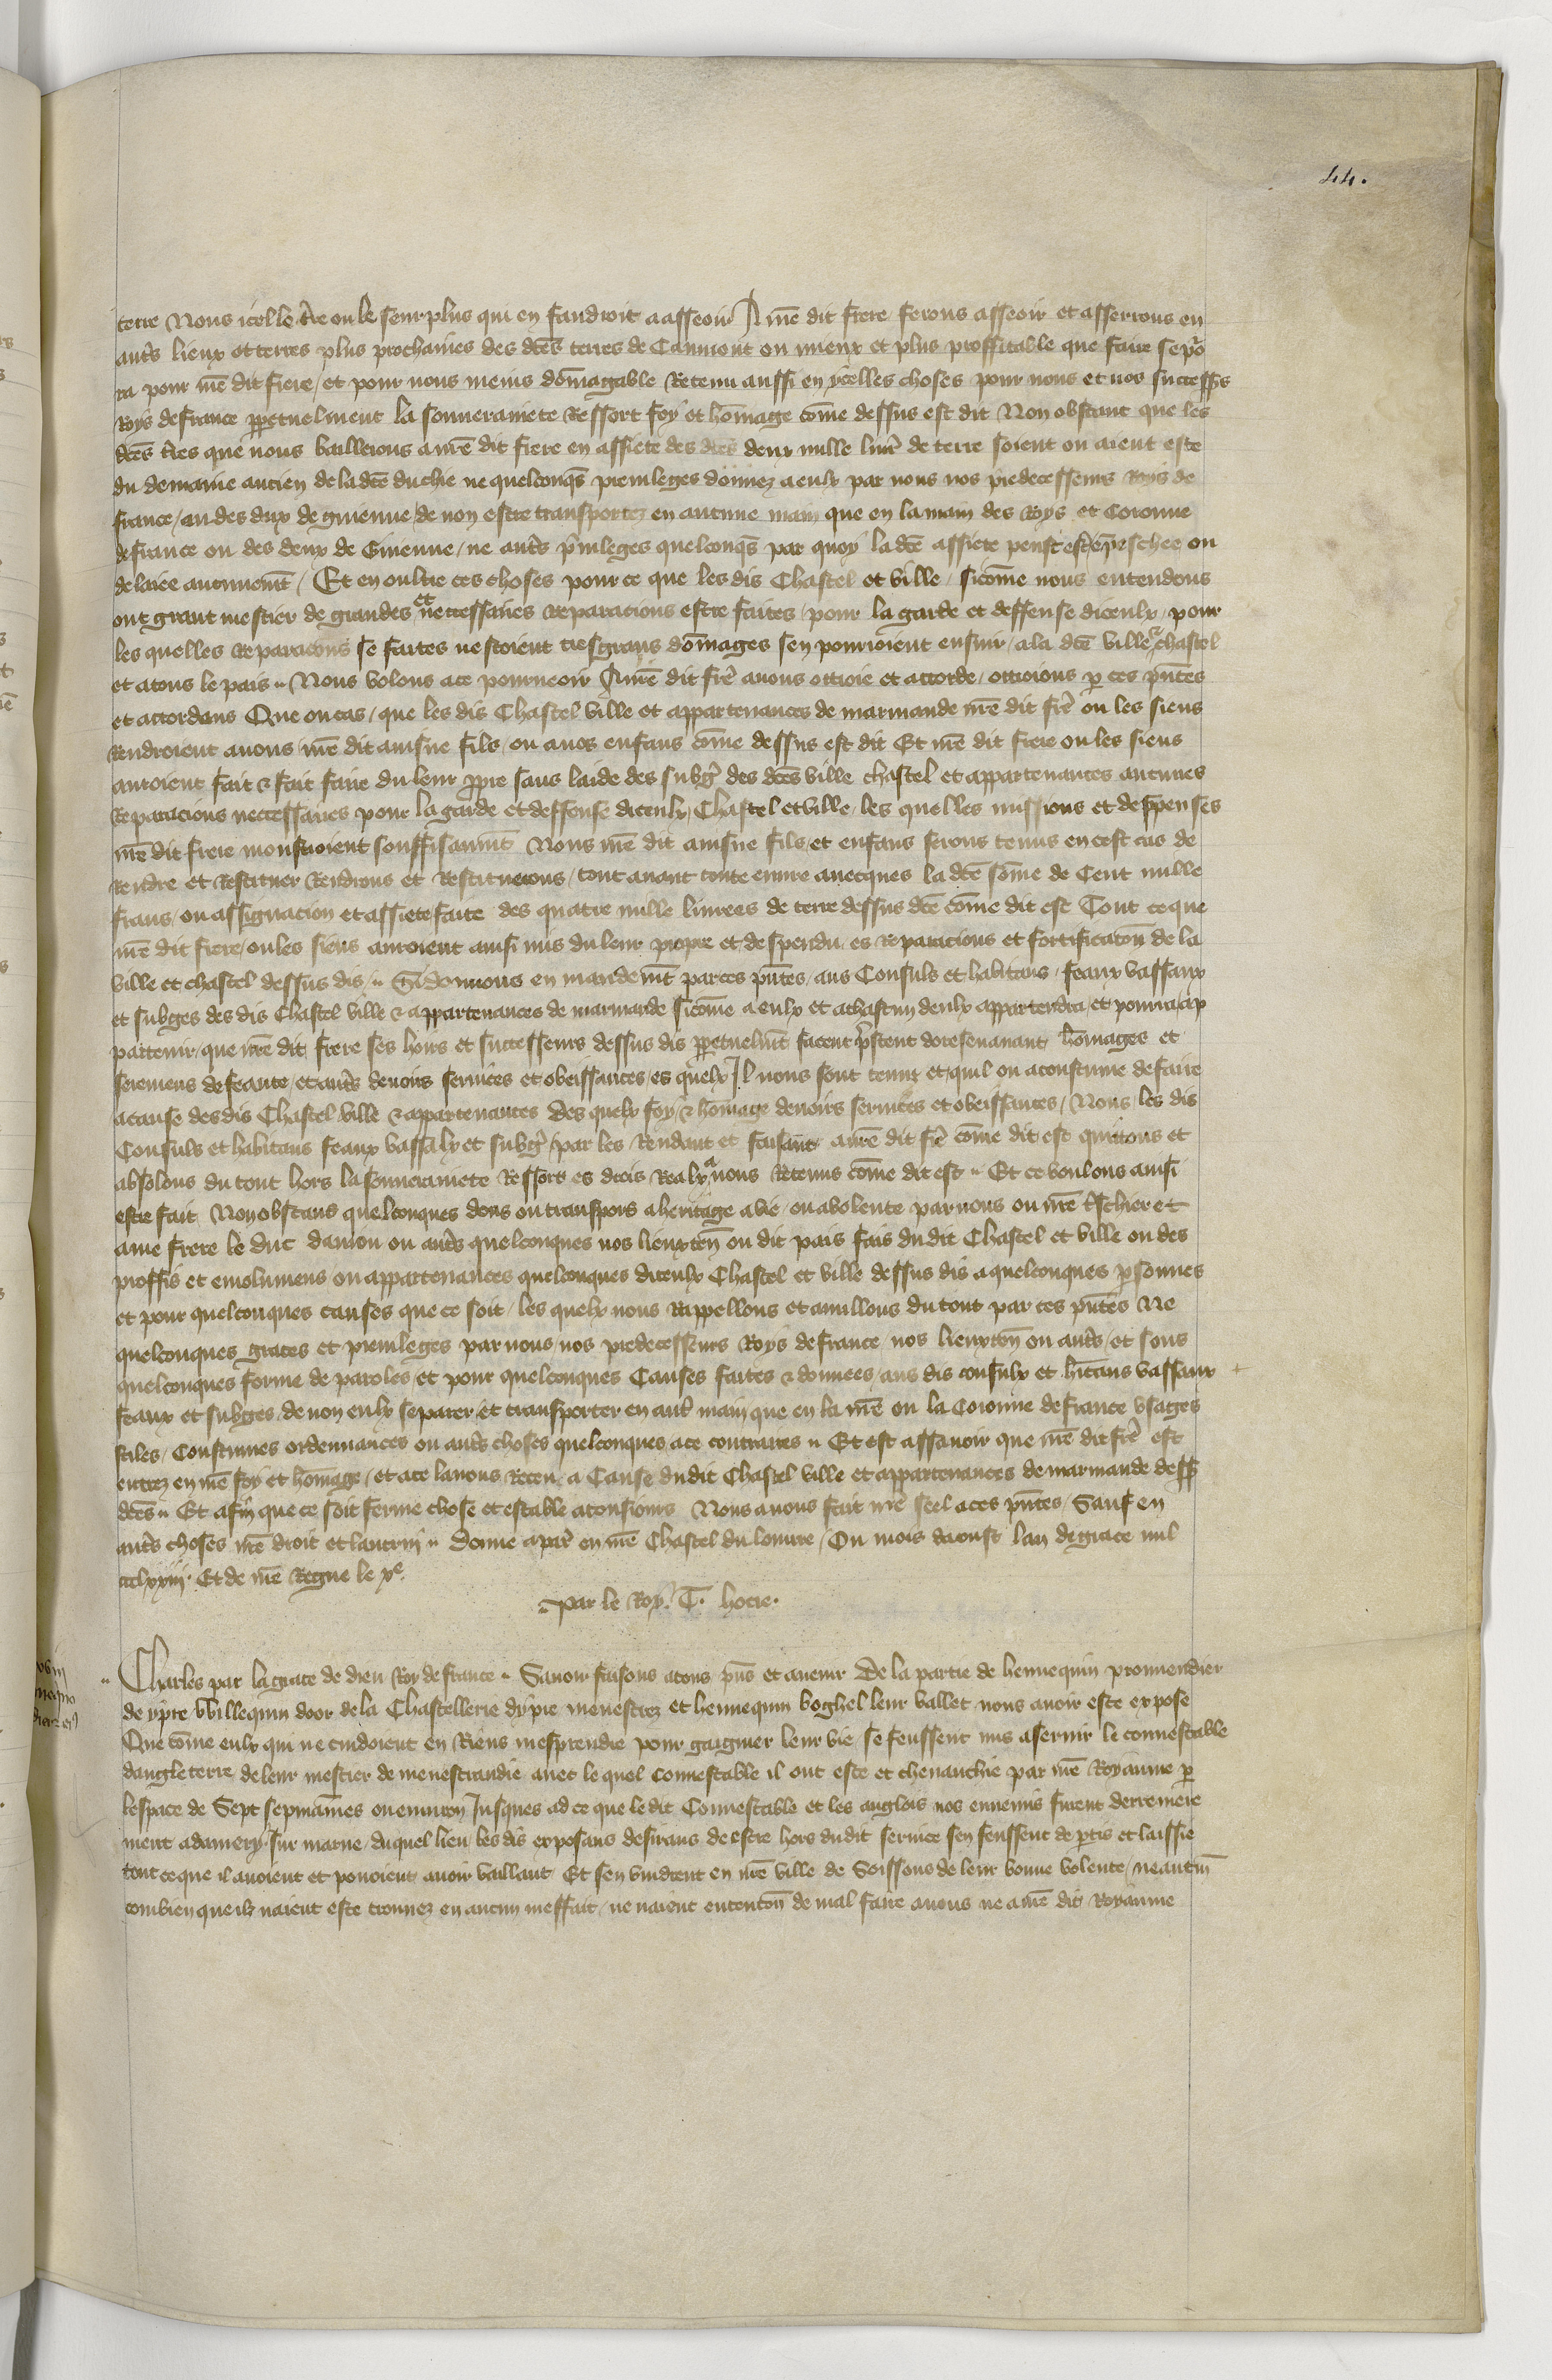 44.
terre Nous icelle t̃re ou le seurplus qui en faudroit a asseoir A nr̃e dit frere ferons asseoir et asserrons en
autr̃s lieux et terres plus prochaines des dc̃es terres de Caumont ou mieux et plus proffitable que faire se po͛
ra pour nr̃e dit frere / et pour nous meins dom̃agable Retenu aussi en ycelles choses pour nous et nos success̃s
Roys de france ꝑpetuelment la souverainete Ressort foy et hom̃age com̃e dessus est dit Non obstant que les
dc̃es t̃res que nous baillerons a nr̃e dit frere en assiete des dc̃es deux mille livr̃ de terre soient ou aient este
du demaine ancien de la dc̃e duchie ne quelconq̃s previleges donnez a eulx par nous nos predecesseurs Roys de
france / ou des dux de guienne / de non estre transportez en aucune main que en la main des Roys et Coronne
de france ou des deux de Guienne / ne autr̃s p̃vileges quelconq̃s par quoy la dc̃e assiete peust estr̃ ep̃eschee ou
delaiee aucunem̃t / Et en oultre ces choses pour ce que les dis Chastel et ville / sicom̃e nous entendons
ont grant mestier de grandes et neccessaires Reparacions estre faites / pour la garde et deffense diceulx / pour
les quelles Reparacions se faites nestoient tresgrans dom̃ages sen pourroient ensuir / a la dc̃e ville & chastel
et a tous le pais ‖ Nous volons a ce pourveoir A nr̃e dit fr̃e avons ottroie et accorde / ottroions ꝑ ces p̃ntes
et accordons Que ou cas / que les dis Chastel ville et appartenances de marmande nr̃e dit fr̃e ou les siens
Rendroient a nous / nr̃e dit ainsne fils / ou a nos enfans com̃e dessus est dit Et nr̃e dit frere ou les siens
auroient fait & fait faire du leur ꝓpre sans laide des subg̃ des dc̃es ville chastel et appartenances aucunes
Reparacions neccessaires pour la garde et deffense diceulx / Chastel et ville / les quelles missions et despenses
nr̃e dit frere monstroient souffisanm̃t Nous nr̃e dit ainsne fils / et enfans serons tenus en cest cas de
Rendre et Restituer Rendrons et Restituerons / tout avant toute euvre avecques la dc̃e som̃e de Cent mille
frans / ou assignacion et assiete faite des quatre mille livrees de terre dessus dc̃e com̃e dit est Tout ce que
nr̃e dit frere / ou les siens auroient ainsi mis du leur propre et despendu es reparacions et fortificacõn de la
ville et chastel dessus dis / ‖ Si donnons en mandem̃t par ces p̃ntes / aus Consuls et habitans / feaux vassaux
et subges des dis Chastel ville & appartenances de marmande sicom̃e a eulx et a chascun deulx appartendra / et pourra ap
partenir / que nr̃e dit frere ses hoirs et successeurs dessus dis ꝑpetuelm̃t facent p̃stent doresenavant hom̃ages et
seremens de feaute / et autr̃s devoirs services et obeissances / es quelx Il nous sont tenuz et / quil on acoustume de faire
a cause des dis Chastel ville & appartenances des quelx foy & hom̃age devoirs services et obeissances / Nous les dis
Consuls et habitans feaux vassalx et subg̃ / par les Rendant et faisant a nr̃e dit fr̃e com̃e dit est quittons et
absolons du tout hors la souverainete Ressort es drois Realx a nous Retenus com̃e dit est ‖ Et ce voulons ainsi
estre fait Non obstans quelconques dons ou transpors a heritage a vie / ou a volente par nous ou nr̃e tr̃schier et
ame frere le duc daniou ou autr̃s quelconques nos lieuxten̄ ou dit pais fais du dit Chastel et ville ou des
proffis et emolumens ou appartenances quelconques diceulx Chastel et ville dessus dis a quelconques ꝑsonnes
et pour quelconques causes que ce soit / les quelx nous Rappellons et anullons du tout par ces p̃ntes Ne
quelconques graces et previleges par nous / nos predecesseurs Roys de france nos lieuxten̄ ou autr̃s / et sous
quelconques forme de paroles / et pour quelconques Causes faites & donnees / aus dis consulx et hĩtans vassaux
feaux et subges de non eulx separer et transporter en autr̃ main que en la nr̃e ou la Coronne de france Usages
stiles / Coustumes ordennances ou autr̃s choses quelconques a ce contraires ‖ Et est assavoir que nr̃e dit fr̃e est
entrez en nr̃e foy et hom̃age / et a ce lavons Receu a Cause du dit Chastel ville et appartenances de marmande dess̃
dc̃es ‖ Et afin que ce soit ferme chose et estable a tousiours Nous avons fait mr̃e seel a ces p̃ntes / Sauf en
autr̃s choses nr̃e droit et lautruy ‖ donne a par̃ en nr̃e Chastel du louvre / Ou mois daoust lan de grace mil
ccclxxiij. Et de nr̃e Regne le xe.
‖ Par le Roy. T. hocie.
Charles par la grace de dieu Roy de france ‖ Savoir faisons a tous p̃ns et avenir De la partie de hennequin prouvendier
de ypre Willequin door de la Chastellerie dypre menestrez et hennequin boghel leur vallet nous avoir este expose
Que com̃e eulx qui ne cuidoient en Riens mesprendre pour gaignier leur vie se feussent mis a servir le connestable
dangleterre de leur mestier de menestraudie avec le quel Connestable il ont este et chevauchie par nr̃e Royaume ꝑ
lespace de Sept sepmaines ou environ Jusques ad ce que le dit Connestable et les anglois nos ennemis furent derreniere
ment a damery sur marne / duquel lieu les dis exposans desirans de estre hors du dit service sen feussent de ꝑtis et laissie
tout ce que il avoient et povoient avoir vaillant Et sen vindrent en nr̃e ville de Soissons de leur bonne volente / neantm̃
combien que ilz naient este trouvez en aucun meffait / ne naient entencõn de mal faire a nous ne a nr̃e dit Royaume